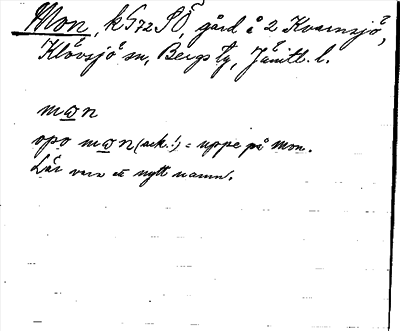 Mon, k572SÖ, gård å 2 Kvarnsjö,
Klövsjö sn, Bergs tg, Jämtl. l.
mωn
opo mωn (ack.!) = uppe på mon.
Lär vara ett nytt namn.